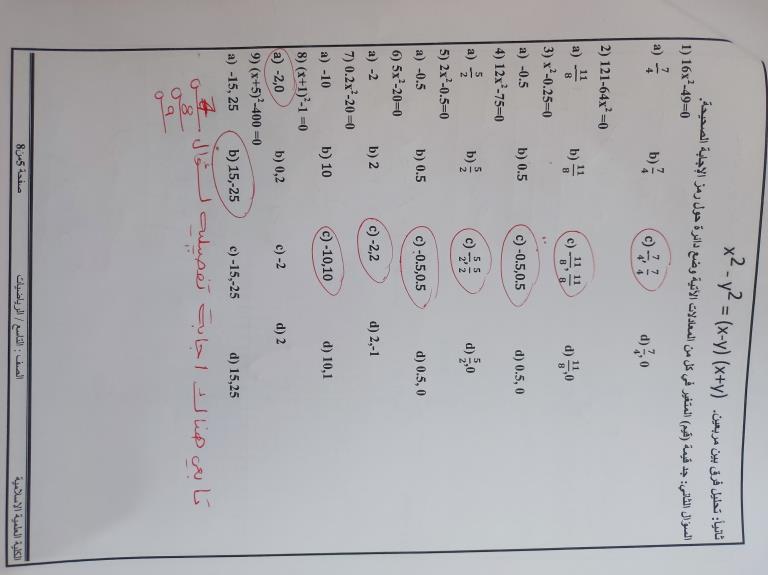 ثانياً: تحليل فرق بين مربعين. x² - y² = (x-y) (x+y)
السؤال الثاني: جد قيمة (قيم) المتغير في كل من المعادلات الآتية وضع دائرة حول رمز الإجابة الصحيحة.
1) 16x²-49=0
a) -7/4 b) 7/4 c) -7/4, 7/4 d) 7/4, 0
2) 121-64x² =0
a) -11/8 b) 11/8 c) -11/8, 11/8 d) 11/8, 0
3) x²-0.25=0
a) -0.5 b) 0.5 c) -0.5,0.5 d) 0.5, 0
4) 12x²-75=0
a) -5/2 b) 5/2 c) -5/2, 5/2 d) 5/2, 0
5) 2x²-0.5=0
a) -0.5 b) 0.5 c) -0.5,0.5 d) 0.5, 0
6) 5x²-20=0
a) -2 b) 2 c) -2,2 d) 2,-1
7) 0.2x²-20 =0
a) -10 b) 10 c) -10,10 d) 10,1
8) (x+1)²-1 =0
a) -2,0 b) 0,2 c) -2 d) 2
9) (x+5)²-400 =0
a) -15, 25 b) 15,-25 c) -15,-25 d) 15,25
تابعي هناك اجابة تفصيلية لسؤال 7
8
9
الكلية العلمية الاسلامية الصف : التاسع / الرياضيات صفحة 5من8